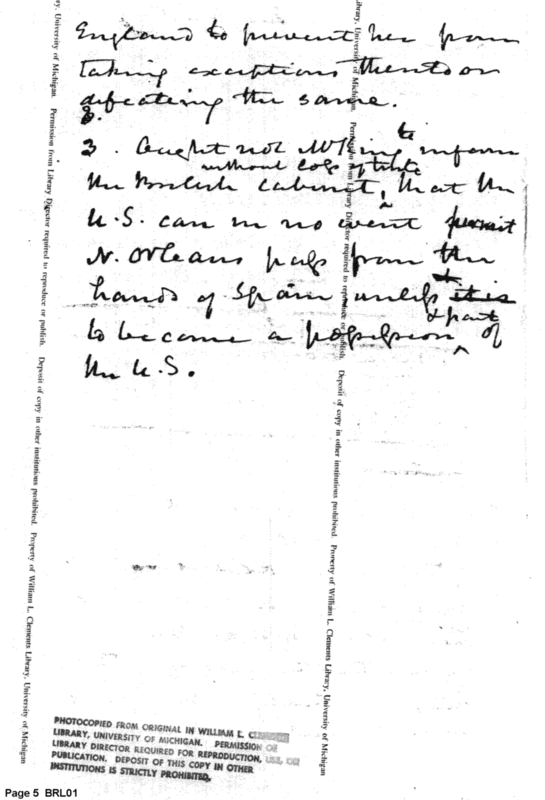 England to prevent her from
taking exceptions thereto or
defeating the same.
3.
3. Ought not Mr King to inform
without loss of time
the British cabinet, that the
U.S. can in no event permit
N. Orleans pass from the
hands of Spain unless it is
& part
to become a possession of
the U.S.
Library, University of Michigan. Permission from Library Director required to reproduce or publish. Deposit of copy in other institutions prohibited. Property of William L. Clements Library, University of Michigan
Library, University of Michigan. Permission from Library Director required to reproduce or publish. Deposit of copy in other institutions prohibited. Property of William L. Clements Library, University of Michigan
PHOTOCOPIED FROM ORIGINAL IN WILLIAM L. CLEMENTS
LIBRARY, UNIVERSITY OF MICHIGAN. PERMISSION OF
LIBRARY DIRECTOR REQUIRED FOR REPRODUCTION, USE, OR
PUBLICATION. DEPOSIT OF THIS COPY IN OTHER
INSTITUTIONS IS STRICTLY PROHIBITED.
Page 5 BRL01